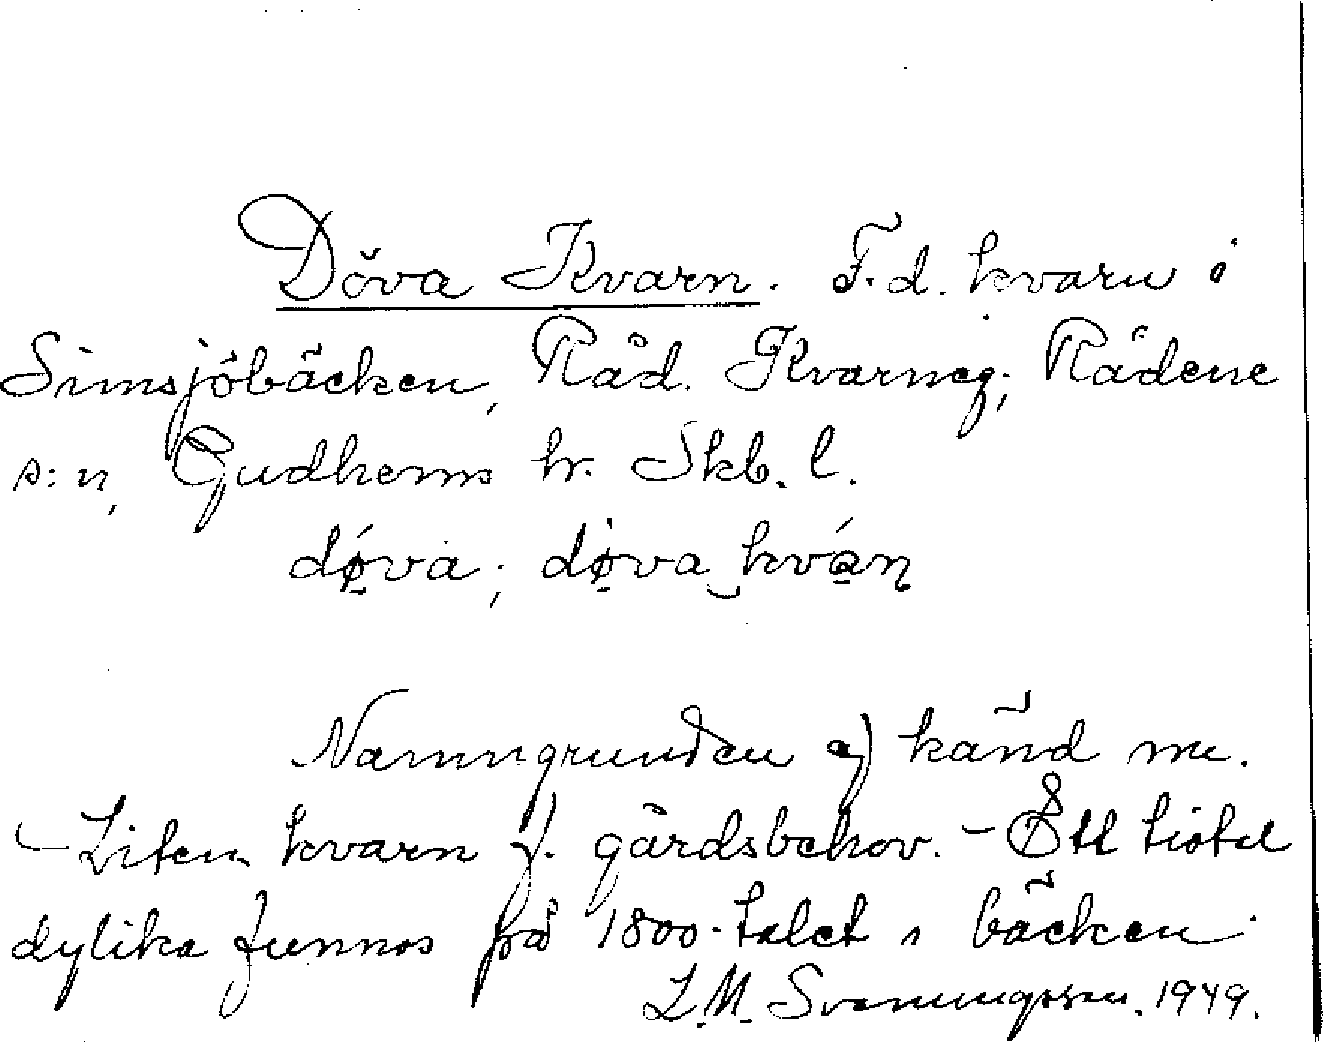 Döva Kvarn. F. d. kvarn i
Simsjöbäcken, Råd. Kvarneg; Rådene
s:n, Gudhems hr. Skb. l.
dǿ̣va; dø̣va‿kván̨
Namngrunden ej känd nu.
- Liten kvarn f. gårdsbehov. - Ett tiotal
dylika funnos på 1800-talet i bäcken
L. M. Svenungsson. 1949.